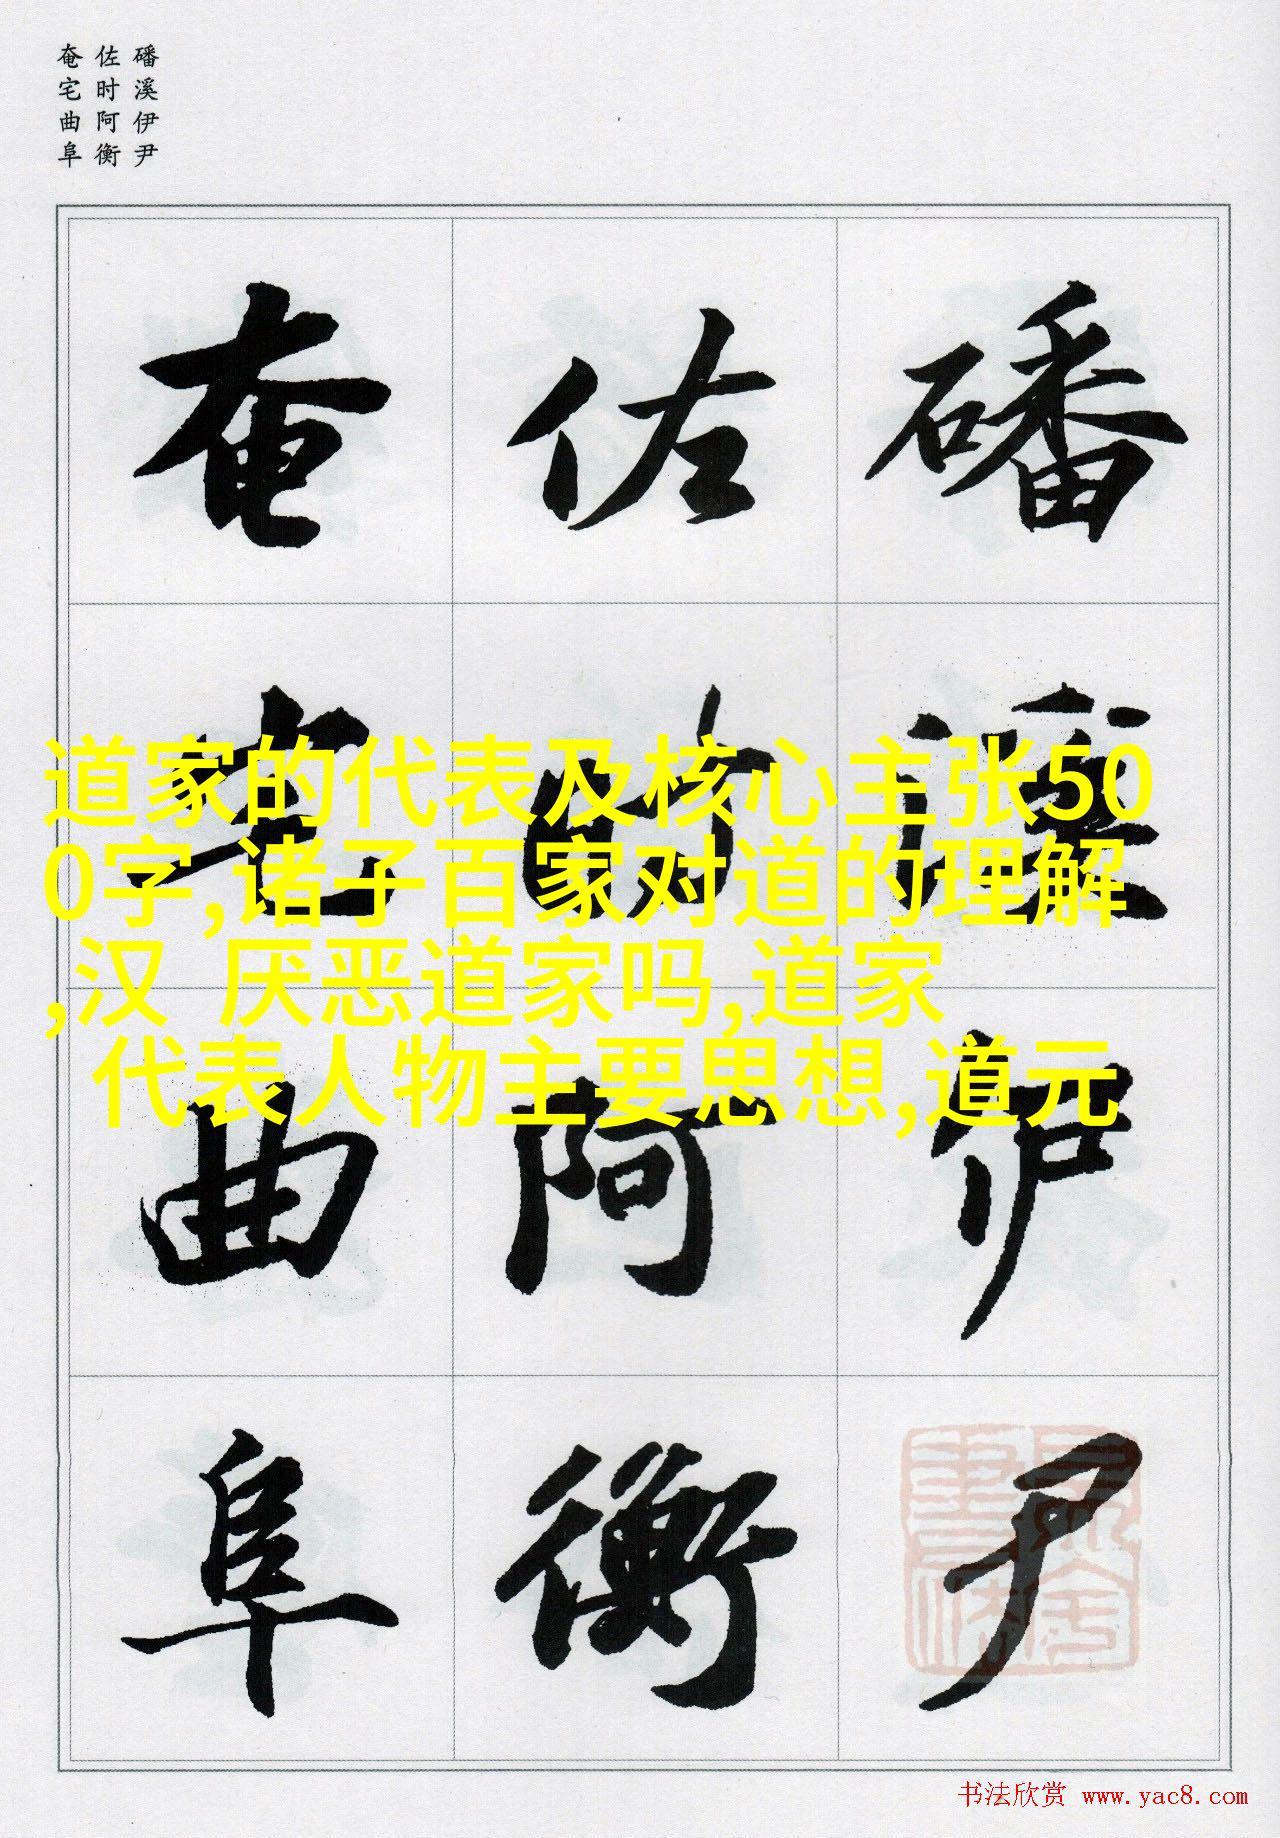 磻溪伊尹
佐时阿衡
奄宅曲阜
磻溪伊尹
佐时阿衡
奄宅曲阜
道家的代表及核心主张50
0字,诸子百家对道的理解
,汉 厌恶道家吗,道家
代表人物主要思想,道元
书法欣赏 www.yac8.com